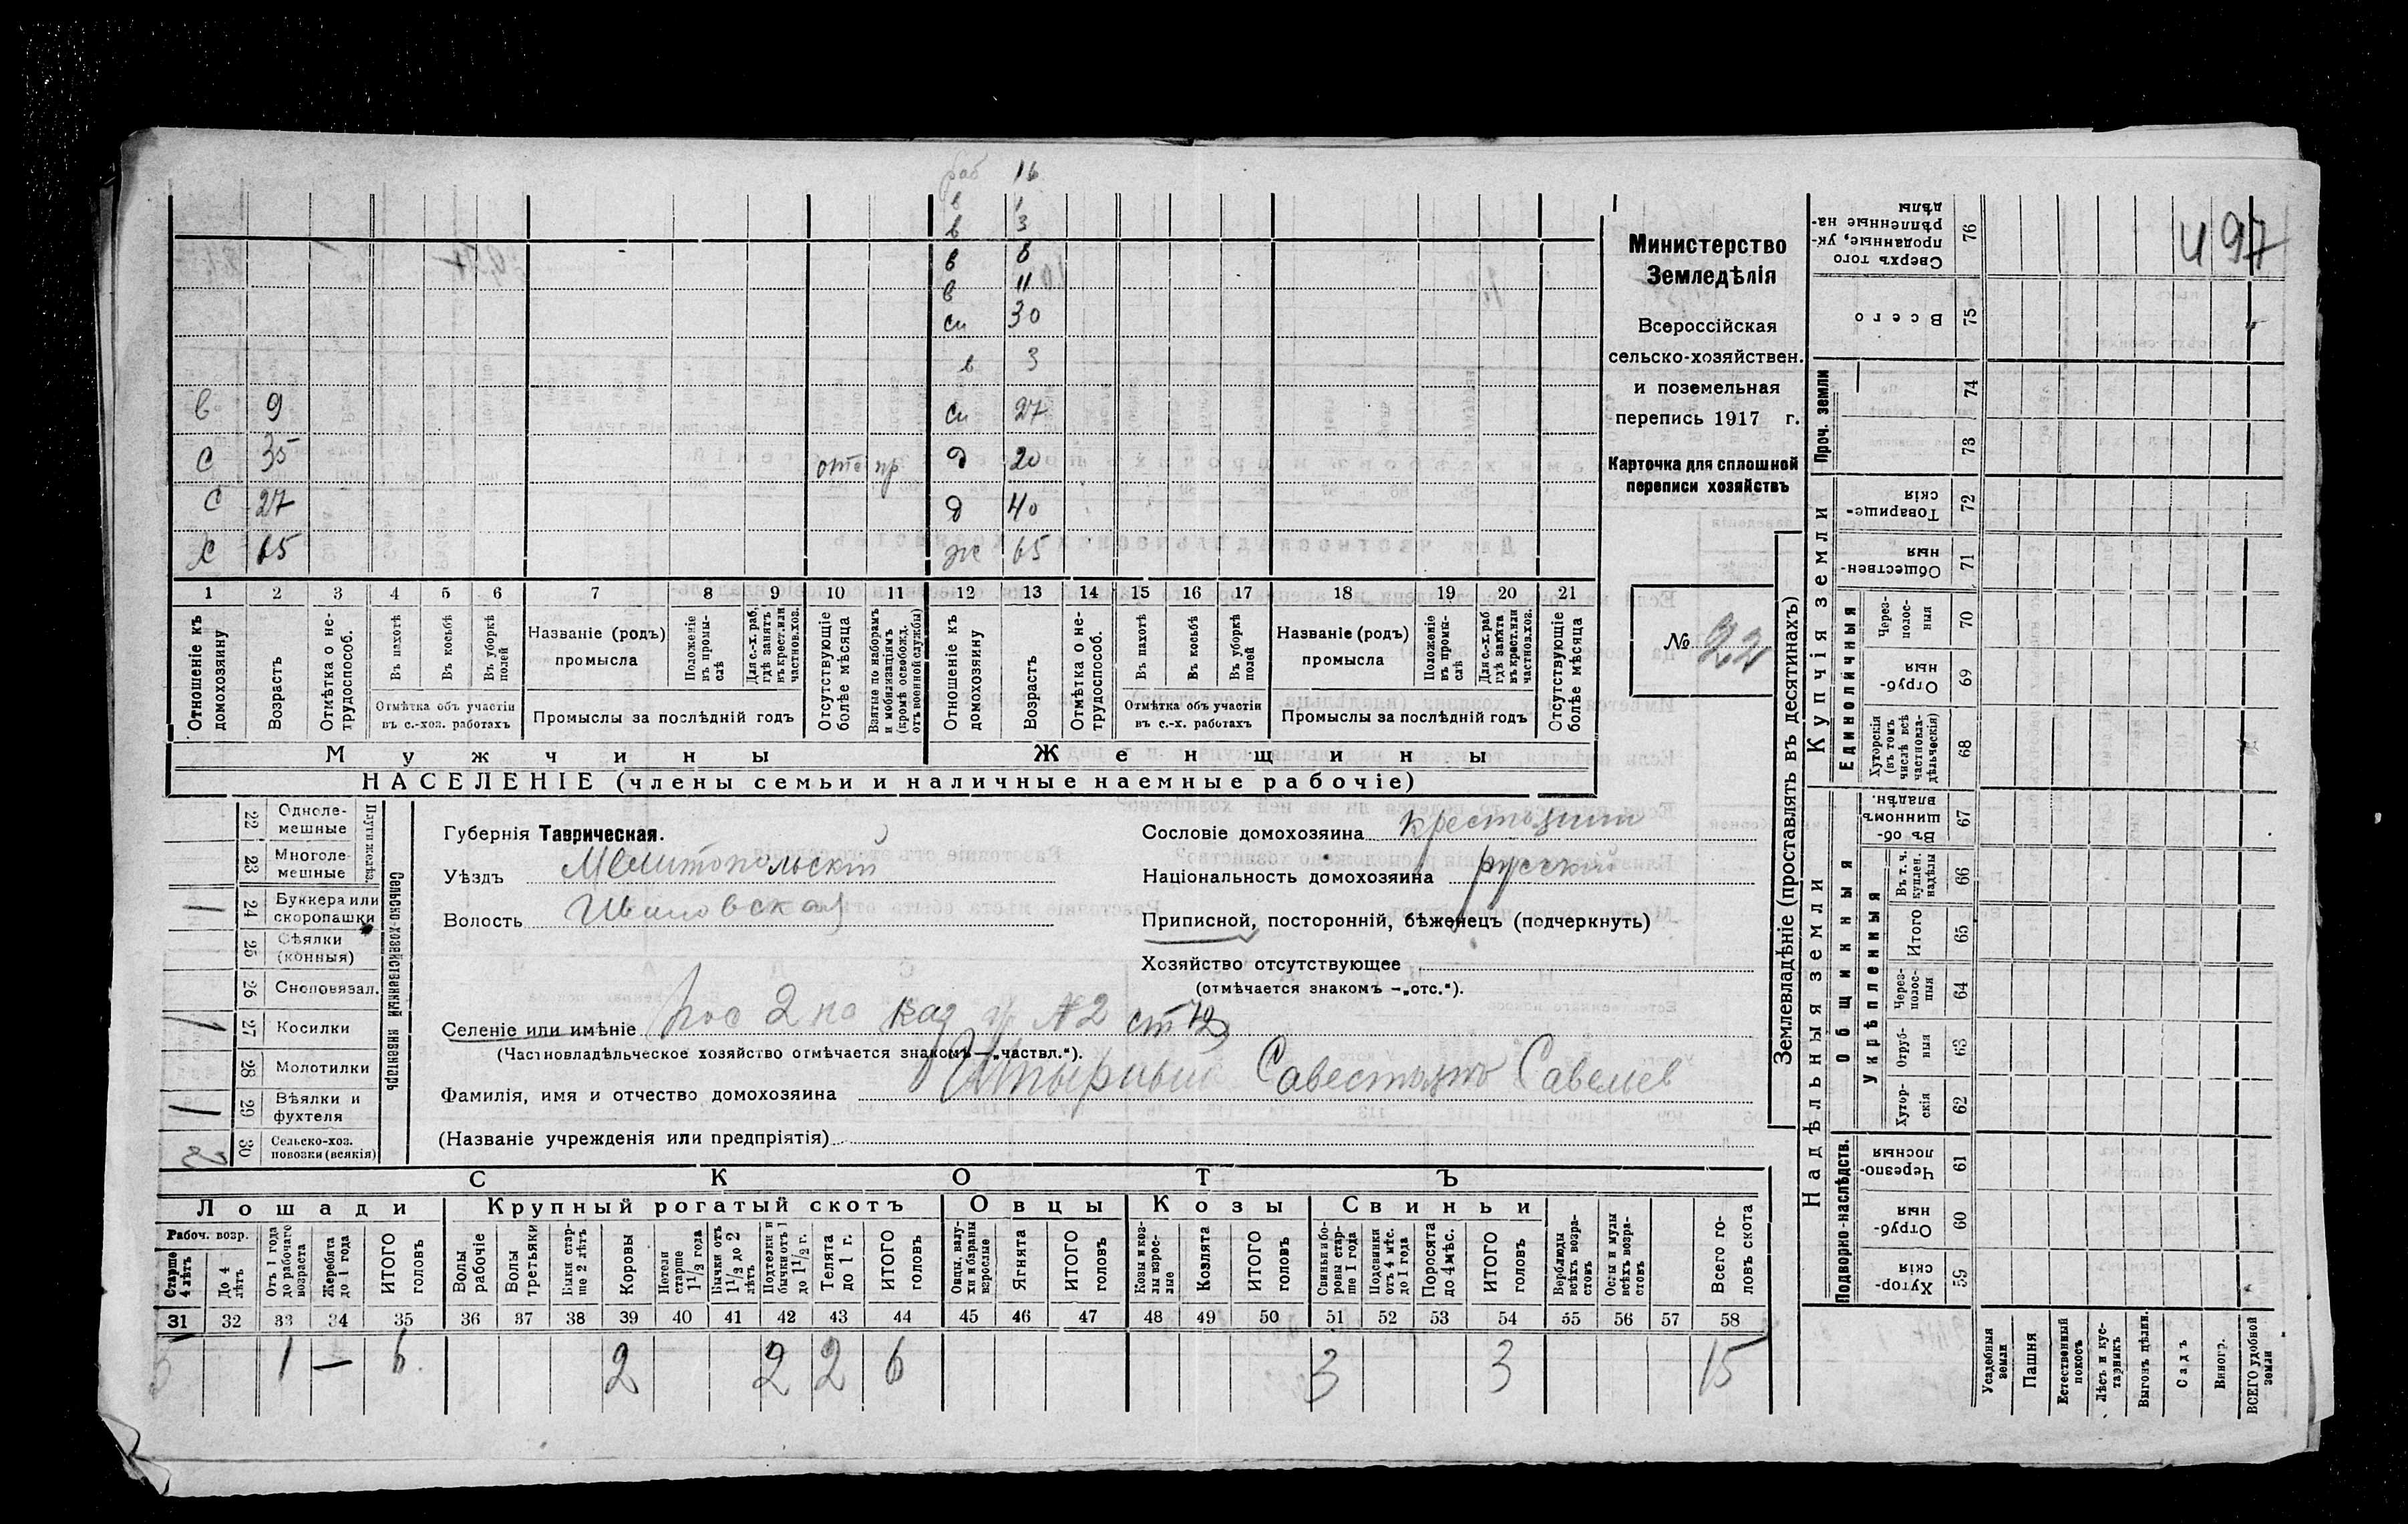 раб 16
в 1
в 3
в 8
в 11
си 30
в 3
в 9 си 27
с 35 отс пр д 20
с 27 д 40
х 65 ж 65
1 2 3 4 5 6 7 8 9 10 11 12 13 14 15 16 17 18 19 20 21
Отношеніе къ домохозяину
Возрастъ
Отмѣтка о не-трудоспособ.
Въ пахотѣ
Въ косьбѣ
Въ уборкѣ полей
Отмѣтка объ участіи
въ с.-хоз. работахъ
Названіе (родъ)
промысла
Положеніе въ промы-слѣ
Для с.-х. раб. гдѣ занятъ въ крест. или частнов. хоз.
Промыслы за послѣдній годъ
Отсутствующіе болѣе мѣсяца
Взятые по наборамъ и мобилизаціямъ (кромѣ освобожд. отъ военной службы)
Отношеніе къ домохозяину
Возрастъ
Отмѣтка о не-трудоспособ.
Въ пахотѣ
Въ косьбѣ
Въ уборкѣ полей
Отмѣтка объ участіи
въ с.-х. работахъ
Названіе (родъ)
промысла
Положеніе въ промы-слѣ
Для с.-х. раб гдѣ занята въ крест. или частнов. хоз.
Промыслы за послѣдній годъ
Отсутствующіе болѣе мѣсяца
Мужчины Женщины
НАСЕЛЕНІЕ (члены семьи и наличные наемные рабочіе)
Министерство
Земледѣлія
Всероссійская
сельско-хозяйствен.
и поземельная
перепись 1917 г.
Карточка для сплошной
переписи хозяйствъ
№ 22
22 Одноле-мешные
23 Многоле-мешные
Плуги желѣз.
1 24 Буккера или скоропашки
25 Сѣялки (конныя)
26 Сноповязал.
1 27 Косилки
28 Молотилки
1 29 Вѣялки и фухтеля
3 30 Сельско-хоз. повозки (всякія)
Сельско-хозяйственный инвентарь
Губернія Таврическая.
Уѣздъ Мелитопольскій
Волость Ивановская
Сословіе домохозяина крестьянин
Національность домохозяина русский
Приписной, посторонній, бѣженецъ (подчеркнуть)
Хозяйство отсутствующее
(отмѣчается знакомъ —„отс.“).
Селеніе или имѣніе пос 2 по № 2 ст 12
(Частновладѣльческое хозяйство отмѣчается знакомъ—„частвл.“).
Фамилія, имя и отчество домохозяина Савестьян Савелев
(Названіе учрежденія или предпріятія)
СКОТЪ
Лошади Крупный рогатый скотъ Овцы Козы Свиньи
Рабоч. возр.
Старше 4 лѣтъ
До 4 лѣтъ
Отъ 1 года до рабочаго возраста
Жеребята до 1 года
ИТОГО головъ
Волы рабочіе
Волы третьяки
Быки стар-ше 2 лѣтъ
Коровы
Нетели старше 1 1/2 года
Бычки отъ 1 1/2 до 2 лѣтъ
Подтелки и бычки отъ 1 до 1 1/2 г.
Телята до 1 г.
ИТОГО головъ
Овцы, валу-хи и бараны взрослые
Ягнята
ИТОГО головъ
Козы и коз-лы взрос-лые
Козлята
ИТОГО головъ
Свиньи и бо-ровы стар-ше 1 года
Подсвинки отъ 4 мѣс. до 1 года
Поросята до 4 мѣс.
ИТОГО головъ
Верблюды всѣхъ возра-стовъ
Ослы и мулы всѣхъ возра-стовъ
Всего го-ловъ скота
31 32 33 34 35 36 37 38 39 40 41 42 43 44 45 46 47 48 49 50 51 52 53 54 55 56 57 58
5 1 — 6 2 2 2 6 3 3 15
Землевладѣніе (проставлять въ десятинахъ)
Надѣльныя земли
Купчія земли
Проч. земли
Подворно-наслѣдств.
Общинныя
Укрѣпленныя
Единоличныя
497
Сверхъ того проданные, ук-рѣпленные на-дѣлы 76
Всего 75
74
73
Товарище-скія 72
Обществен-ныя 71
Через-полос-ныя 70
Отруб-ныя 69
Хуторскія (въ томъ числѣ всѣ частновла-дѣльческія) 68
Въ об-щинномъ владѣн. 67
Въ т. ч. куплен. надѣлы 66
Итого 65
Через-полос-ныя 64
Отруб-ныя 63
Хутор-скія 62
Черезпо-лосныя 61
Отруб-ныя 60
Хутор-скія 59
Усадебныя земли
Пашня
Естественный покосъ
Лѣсъ и кус-тарникъ
Выгонъ цѣлин.
Садъ
Виногр.
ВСЕГО удобной земли